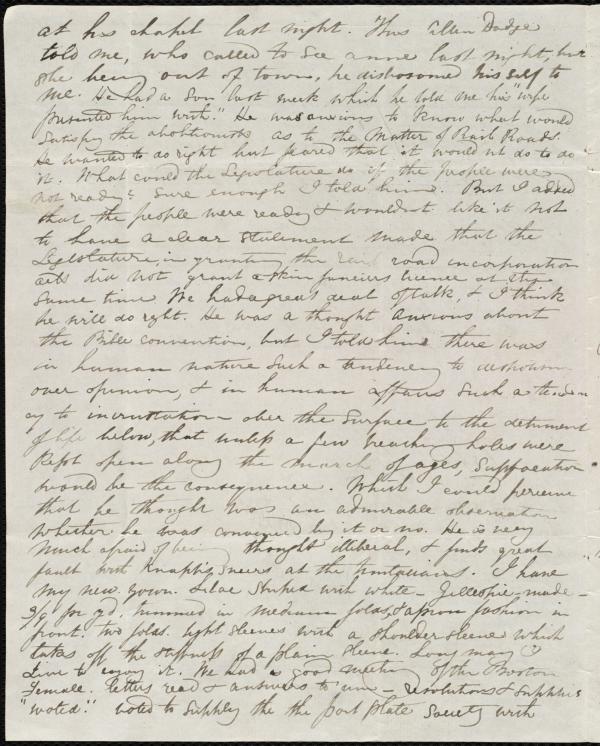 at his chapel last night. Thus Allen Dodge
told me, who called to see Anne last night, but
she being out of town, he disbosomed his self to
me. He had a Son last week which he told me his "wife
presented him with." He was anxious to know what would
Satisfy the abolitionists as to the matter of Rail Roads.
He wanted to do right but feared that it would nt do to do
it. What could the Legislature do if the people were
not ready? Sure enough I told him. But I added
that the people were ready & wouldnt like it not
to have a clear Statement made that the
Legislature, in granting the rail road incorporation
acts did not grant a skin junciers licence at the
Same time We had a great deal of talk, & I think
he will do right. He was a thought anxious about
the Bible convention, but I told him there was
in human nature such a tendency to
over opinion, & in human affairs such a tenden
cy to incrustation over the Surface to the detriment
of life below, that unless a few breathing holes were
Kept open along the march of ages, Suffocation
would be the consequence. Which I could perceive
that he thought was an admirable observation
whether he was convinced by it or no. He is very
much afraid of being thought illiberal, & finds great
fault with Knapp's sneers at the Unitarians. I have
my new gown. Lilac Striped with white - Gillespie made -
3/9 pr yd, trimmed in medium folds, & apron fashion in
front. two folds. tight sleeves with a shoulder sleeve which
takes off the stiffness of a plain sleeve. Long may I
live to enjoy it. We had a good meeting of the Boston
Female. letters read & answers to 'em - resolutions & supplies
"woted." voted to supply the the port plate Society with